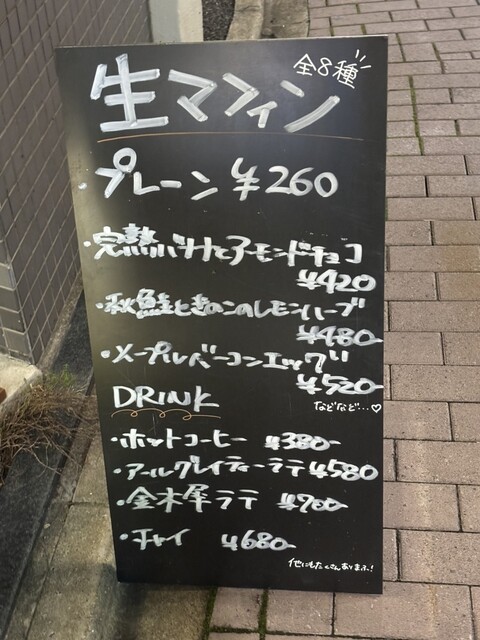 全8種
生マフィン
・プレーン ¥260
・完熟バナナとアーモンドチョコ
¥420
・秋鮭ときのこのレモンハーブ
¥480-
・メープルベーコンエッグ
¥520-
などなど…♡
DRINK
・ホットコーヒー ¥380-
・アールグレイティーラテ ¥580
・金木犀ラテ ¥700-
・チャイ ¥680-
他にもたくさんあります!